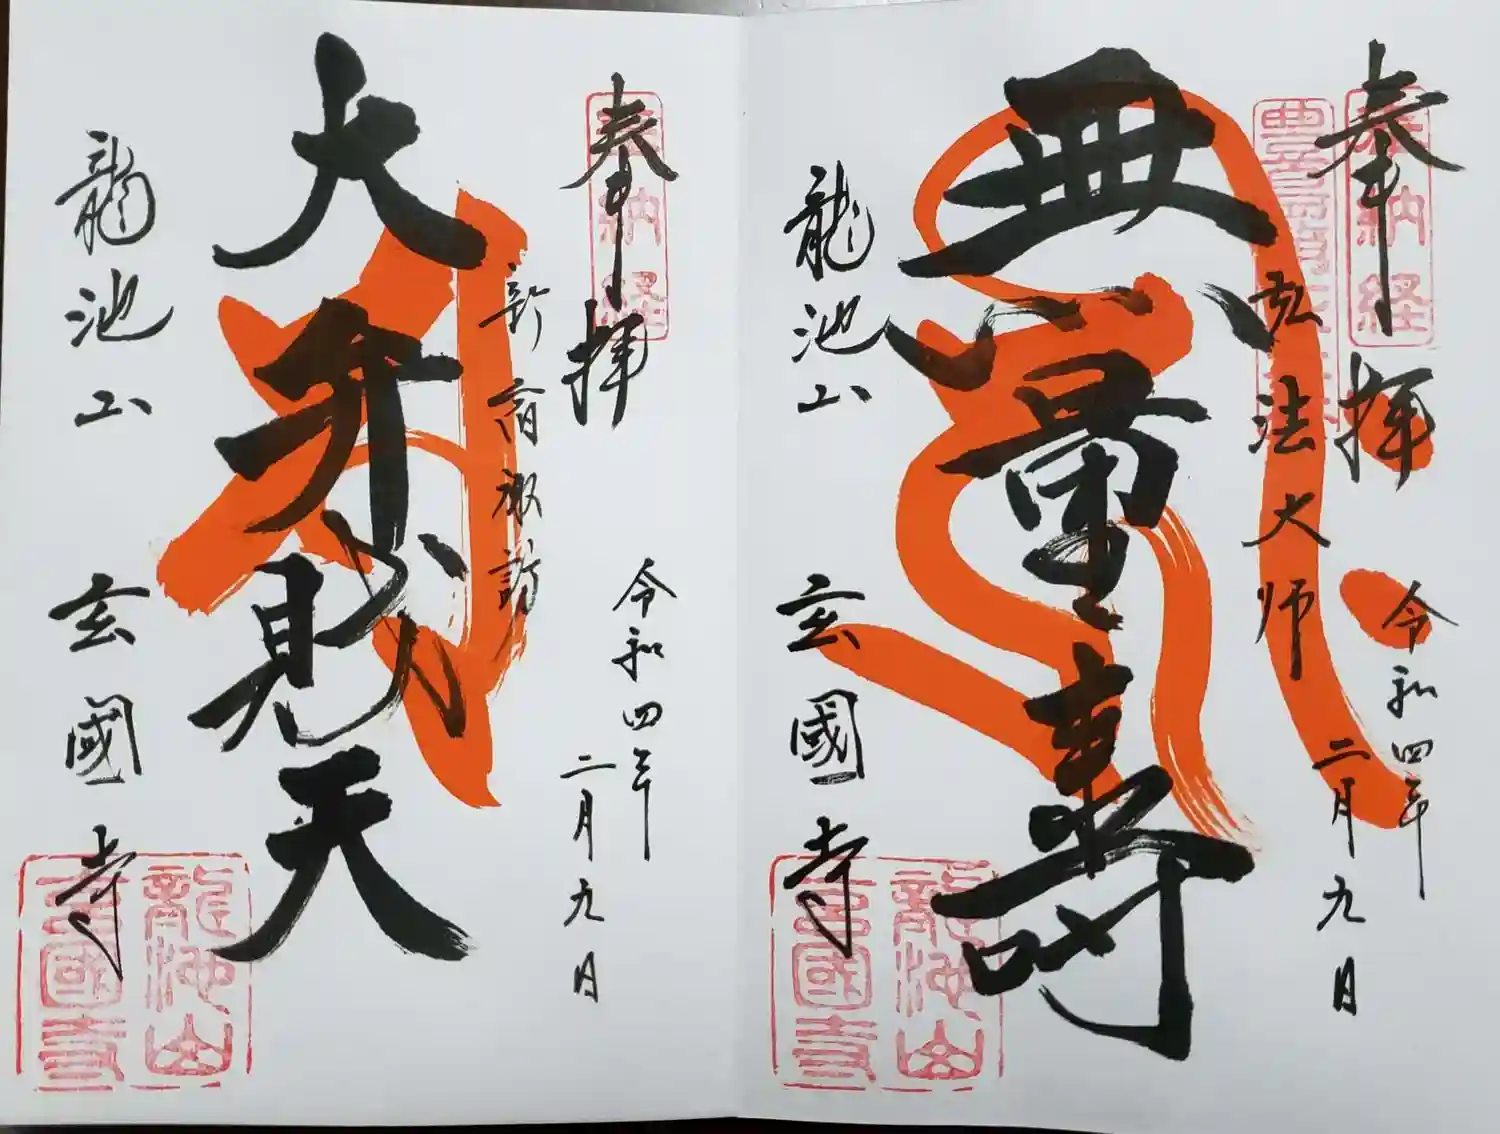 奉拝
奉納経
弘法大师
令和四年
二月九日
無量寿
龍池山
玄國寺
龍池山
玄國寺
奉拝
奉納経
新宿諏訪
令和四年
二月九日
大弁財天
龍池山
玄國寺
龍池山
玄國寺